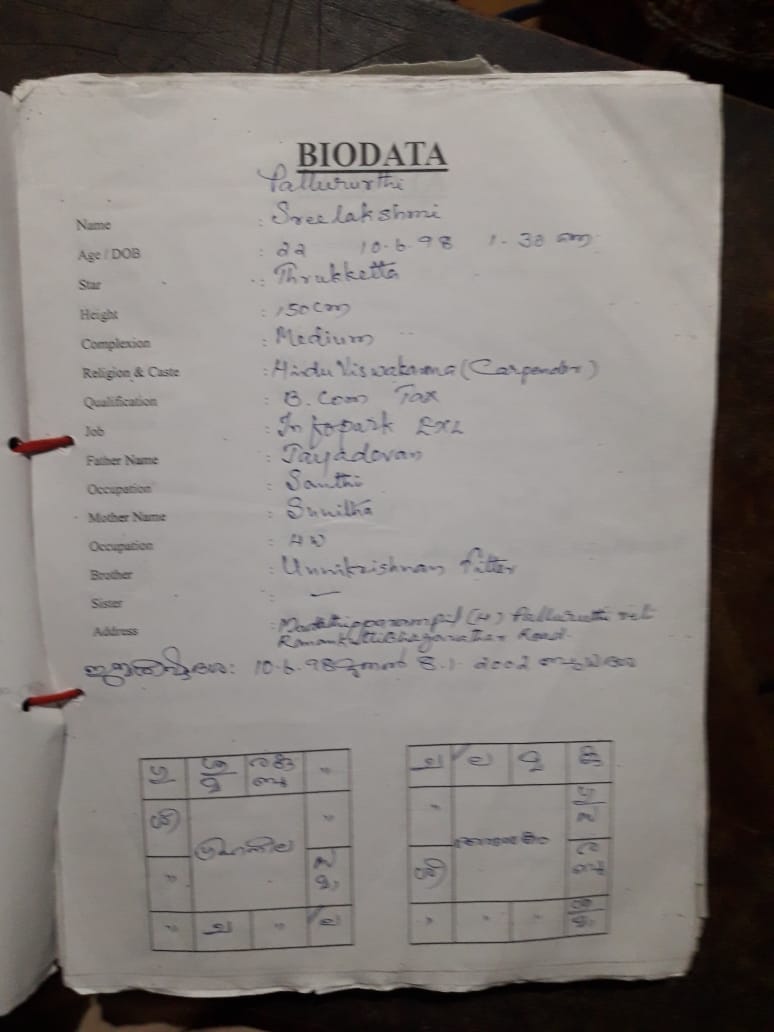 BIODATA
Pallururthi
Name : Sreelakshmi
Age / DOB : 22 10.6.98 1.30
Star : Thrukketta
Height : 150cm
Complexion : Medium
Religion & Caste : Hindu Viswakarma (Carpender)
Qualification : B.Com Tax
Job : Infopark EXL
Father Name : Jayadevan
Occupation : Santhi
Mother Name : Sunitha
Occupation : HW
Brother : Unnikrishnan fitter
Sister : —
Address : (H) Palluruthi
Road.
10.6.98 മുതൽ 8.1.2002
ഗു ശു ര "
മ ബു
ശി ഗ്രഹനില "
" സ
" ച " ല
ച ല മ കു
" ഗു
സ
ശി ര
ബു
" " " ശു